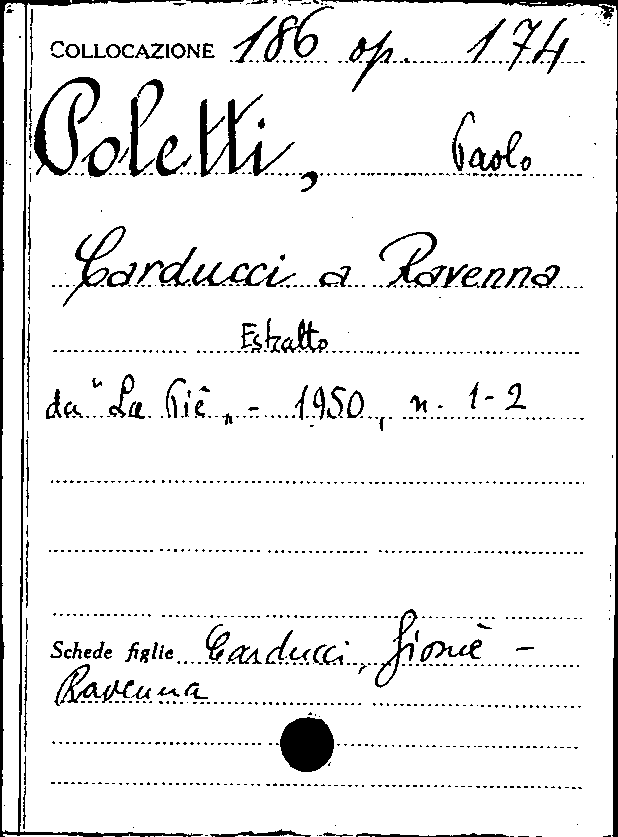 COLLOCAZIONE 186 op. 174
Poletti, Paolo
Carducci a Ravenna
Estratto
da "La Piê„ - 1950, n. 1-2
Schede figlie Carducci, Giosuè -
Ravenna